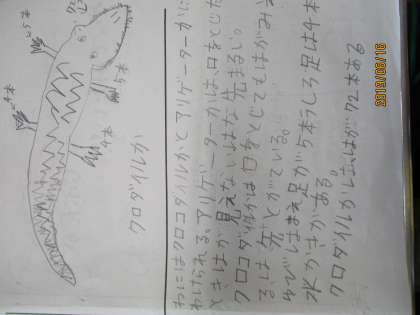 →5本
→4本
→5本
→4本
クロダイルか
わにはクロコダイルかとアリゲーターかに
わけられる。アリゲーターかは、口をとじた
ときはが見えないはな先まるい。
クロコダイルかは口をとじてもはがみえ
る。はなとがている。
ゆびはまえ足が5本うしろ足は4本
水かきがある。
クロダイルかは、はが72本ある